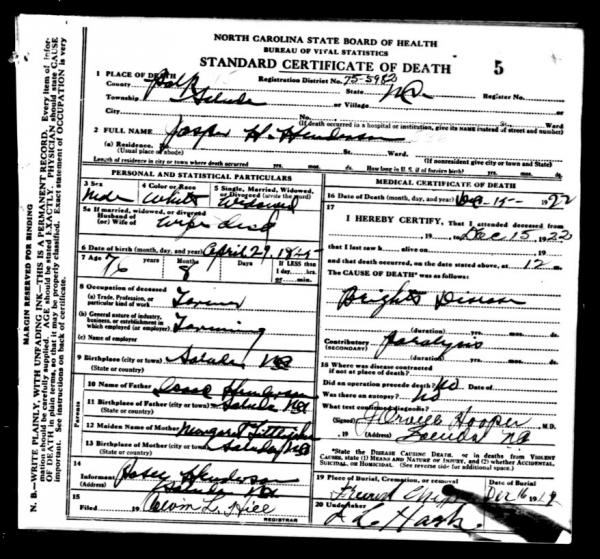 NORTH CAROLINA STATE BOARD OF HEALTH
BUREAU OF VITAL STATISTICS
STANDARD CERTIFICATE OF DEATH 5
1 PLACE OF DEATH
County Polk Registration District No. 75-5983 State N.C. Register No.
Township Saluda or Village
City St. Ward
(If death occurred in a hospital or institution, give its NAME instead of street and number)
2 FULL NAME Jasper H. Henderson
(a) Residence. St. Ward.
(Usual place of abode) (If nonresident give city or town and State)
Length of residence in city or town where death occurred yrs. mos. ds. How long in U. S. if of foreign birth? yrs. mos. ds.
PERSONAL AND STATISTICAL PARTICULARS
3 Sex 4 Color or Race 5 Single, Married, Widowed, or Divorced (write the word)
White Widowed
5a If married, widowed, or divorced
Husband of
(or) Wife of wife dead
6 Date of birth (month, day, and year) April 29, 1845
7 Age years Months Days If LESS than
76 8 1 day, hrs.
or min.
8 Occupation of deceased
(a) Trade, Profession, or particular kind of work Farmer
(b) General nature of industry, business, or establishment in which employed (or employer) Farming
(c) Name of employer
9 Birthplace (city or town) Saluda NC
(State or country)
Parents
10 Name of Father Isaac Henderson
11 Birthplace of Father (city or town) Saluda NC
(State or country)
12 Maiden Name of Mother Margaret
13 Birthplace of Mother (city or town) Saluda NC
(State or country)
14
Informant Henderson
(Address) Saluda NC
15
Filed , 19 REGISTRAR
MEDICAL CERTIFICATE OF DEATH
16 Date of Death (month, day, and year) Dec 15- 1922
17
I HEREBY CERTIFY, That I attended deceased from
, 19 , to Dec 15, 1922
that I last saw h alive on , 19
and that death occurred, on the date stated above, at 12 m.
The CAUSE OF DEATH* was as follows:
Brights Disease
(duration) yrs. mos. ds.
Contributory Paralysis
(Secondary)
(duration) yrs. mos. ds.
18 Where was disease contracted
if not at place of death?
Did an operation precede death? No Date of
Was there an autopsy? No
What test confirmed diagnosis?
(Signed) Hooper, M.D.
, 19 (Address) NC
*State the DISEASE CAUSING DEATH, or in deaths from VIOLENT CAUSES, state (1) MEANS AND NATURE OF INJURY, and (2) whether ACCIDENTAL, SUICIDAL, or HOMICIDAL. (See reverse side for additional space.)
19 Place of Burial, Cremation, or removal Date of Burial
Dec 16 19
20 Undertaker
MARGIN RESERVED FOR BINDING
N. B.—WRITE PLAINLY, WITH UNFADING INK—THIS IS A PERMANENT RECORD. Every item of information should be carefully supplied. AGE should be stated EXACTLY. PHYSICIAN should state CAUSE OF DEATH in plain terms, so that it may be properly classified. Exact statement of OCCUPATION is very important. See instructions on back of certificate.